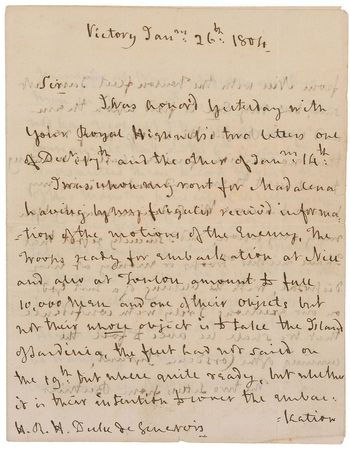 Victory Janry: 26th: 1804
Sir
I was honor'd yesterday with
your Royal Highness's two letters one
of Decr: 17th: and the other of Janry: 14th:
I was on my rout for Madalena
having by my frigates received informa-
-tion of the motions of the Enemy, the
troops ready for embarkation at Nice
and also at Toulon amount to full
10,000 men and one of their objects but
not their whole object is to take the Island
of Sardinia, the fleet had not sailed on
the 19th: but were quite ready, but whether
it is their intention to cover the embar-
-kation
H.R.H. Duke de Genevois